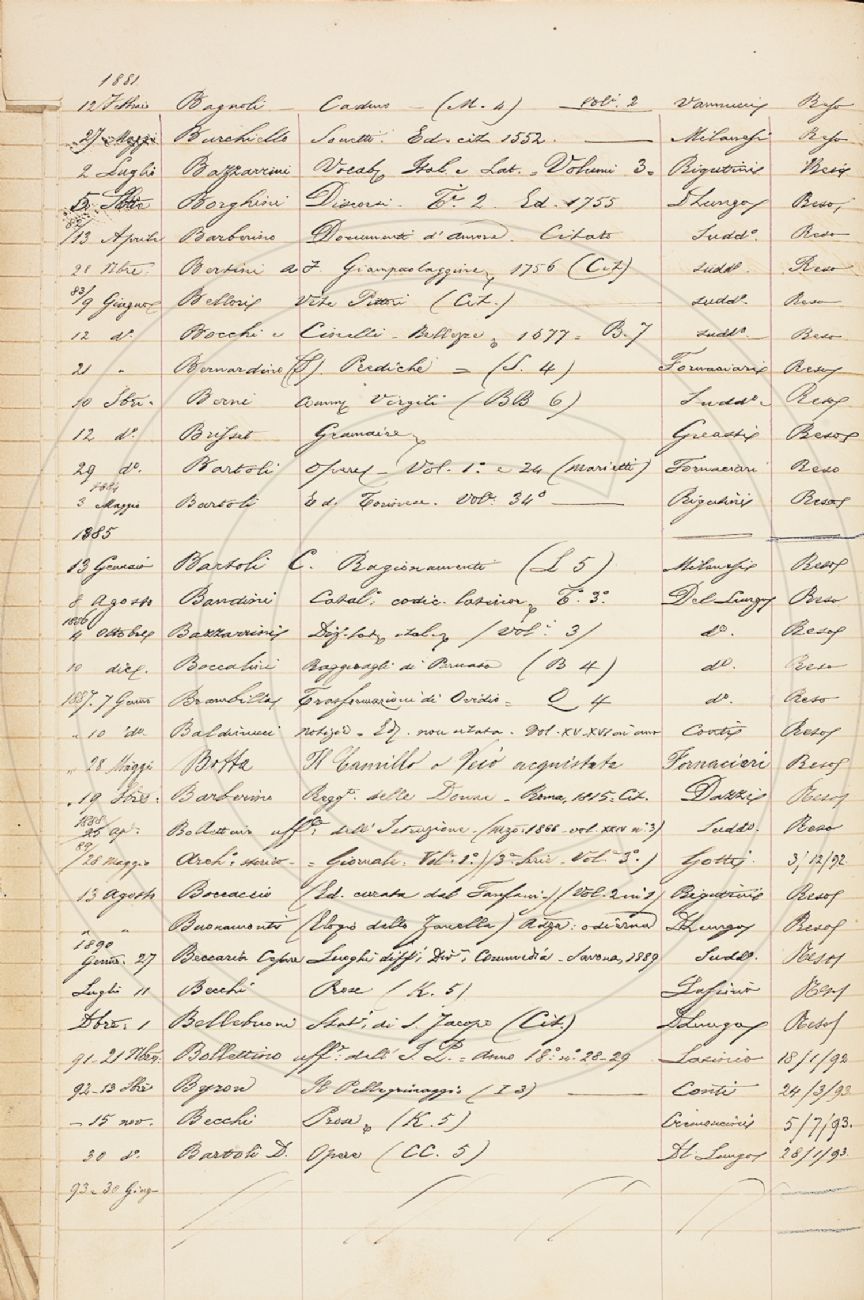 1881
12 Febbraio Bagnoli Cadmo - (M. 4) Vol. 2 Vannucci Reso
27 Maggio Burchiello Sonetti. Ed. cit. 1552. Milanesi Reso
2 Luglio Bazzarini Vocab. Ital. e Lat. - Volumi 3. Rigutini Reso
5. Borghini Discorsi. T. 2. Ed. 1755 D Lungo Reso
/13 Aprile Barberino Documenti d'amore. Citato Sudd°. Reso
28 Bertini a 1756 (Cit) sudd°. Reso
83/
9 Giugno Bellori Vite Pittori (Cit.) sudd°. Reso
12 d°. Bocchi e Cinelli - Bellezze 1677 = B. 7 sudd°. Reso
21 " Bernardino (S) Prediche = (S. 4) Fornaciari Reso
10 Berni Virgili (BB 6) Sudd°. Reso
12 d°. Grandire Reso
29 d°. Bartoli Opere - Vol. 1° e 24 (Marietti) Fornaciari Reso
1884
3 Maggio Bartoli Ed. Torinese. Vol. 34° Rigutini Reso
1885
13 Gennaio Bartoli C. Ragionamenti (L 5) Milanesi Reso
8 Agosto Bandini Catal°. codic. latinor. T. 3°. Del Lungo Reso
1886
4 Ottobre Bazzarini (Vol. 3) d°. Reso
10 dic. Boccalini Ragguagli di Parnaso (B 4) d°. Reso
1887. 7 Genn Brambilla Trasformazioni di Ovidio = Q 4 d°. Reso
" 10 d°. Baldinucci notizie - Ed. non citata. Vol. XV-XVI Conti Reso
" 28 Maggi Botta Il Camillo o Vejo acquistata Fornaciari Reso
" 19 Barberino Regg°. delle Donne - Roma, 1815 = Cit. Dazzi Reso
1888
25 ap. Bollettino uff. dell'Istruzione. (Mzo. 1888 - vol. XXIV n° 3) Sudd°. Reso
89/
/28 Maggio Arch°. storico - = Giornale: Vol. 1°. / (3ª Serie - Vol. 3°.) Gotti 3/12/92
13 Agosto Boccaccio (Ed. curata dal Fanfani) (Vol. 2 in 1) Rigutini Reso
" " Buonamonti (Elogio dello Zanella) D Lungo Reso
1890
Genn. 27 Beccaria Cesare Luoghi diff. Div. Commedia - Savona, 1889 Sudd°. Reso
Luglio 11 Becchi Prose (K. 5) Lasinio Reso
Dbre. 1 Bellebuoni Stat. di S. Jacopo (Cit.) D Lungo Reso
91. 21 Bollettino uff. dell'I. P. = Anno 18°. n° 28-29 Lasinio 18/1/92
92 - 13 Byron Il Pellegrinaggio (I 3) Conti 24/3/93
- 15 nov. Becchi Prose (K. 5) 5/7/93.
30 d°. Bartoli D. Opere (CC. 5) D. Lungo 28/1/93.
93 - 30 Giug